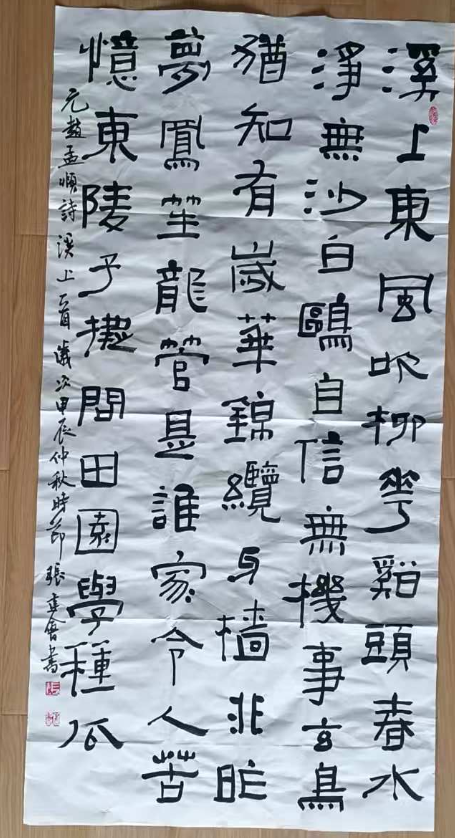 溪上東風吹柳花谿頭春水
淨無沙白鷗自信無機事玄鳥
猶知有歲華錦纜牙檣非昨
夢鳳笙龍管是誰家令人苦
憶東陵子擬問田園學種瓜
元趙孟頫詩溪上一首歲次甲辰仲秋時節張會書